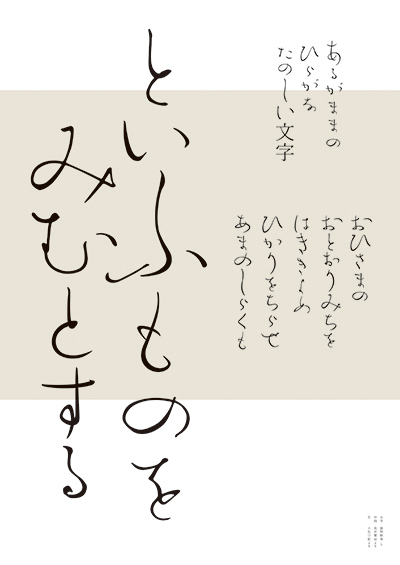 あるがままの
ひらがな
たのしい文字
おひさまの
おとおりみちを
はききよめ
ひかりをちらせ
あまのしらくも
といふものを
みむとする